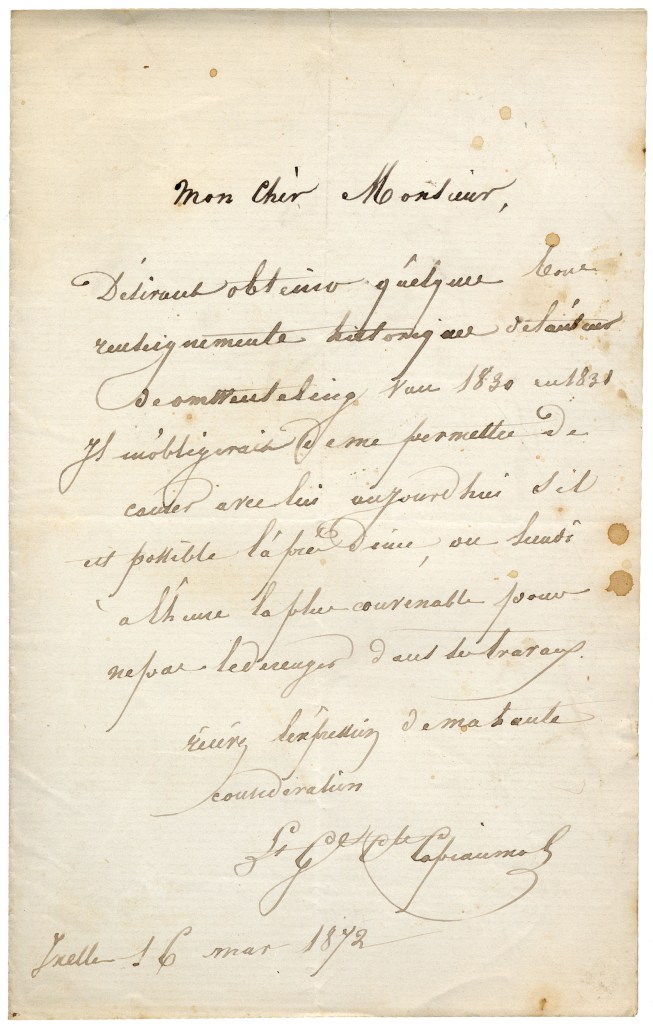 Mon Chèr Monsieur,
Désirant obtenir quelque bons
renseignements historique de l'auteur
van 1830 en 1831
Il m'obligerait de me permettre de
causer avec lui aujourdhui s'il
est possible l'aprés diné, ou lundi
à l'heure la plus convenable pour
ne pas le déranger dans ses travaux.
l'expression de ma haute
consideration
Le
Ixelle 16 mar 1872